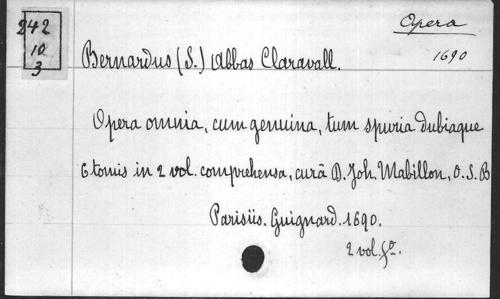 242
10
3
Opera
1690
Bernardus (S.) Abbas Claravall.
Opera omnia, cum genuina, tum spuria dubiaque
6 tomis in 2 vol. comprehensa, curâ D. Joh. Mabillon, O. S. B
Parisiis. Guignard. 1690.
2 vol. fo.